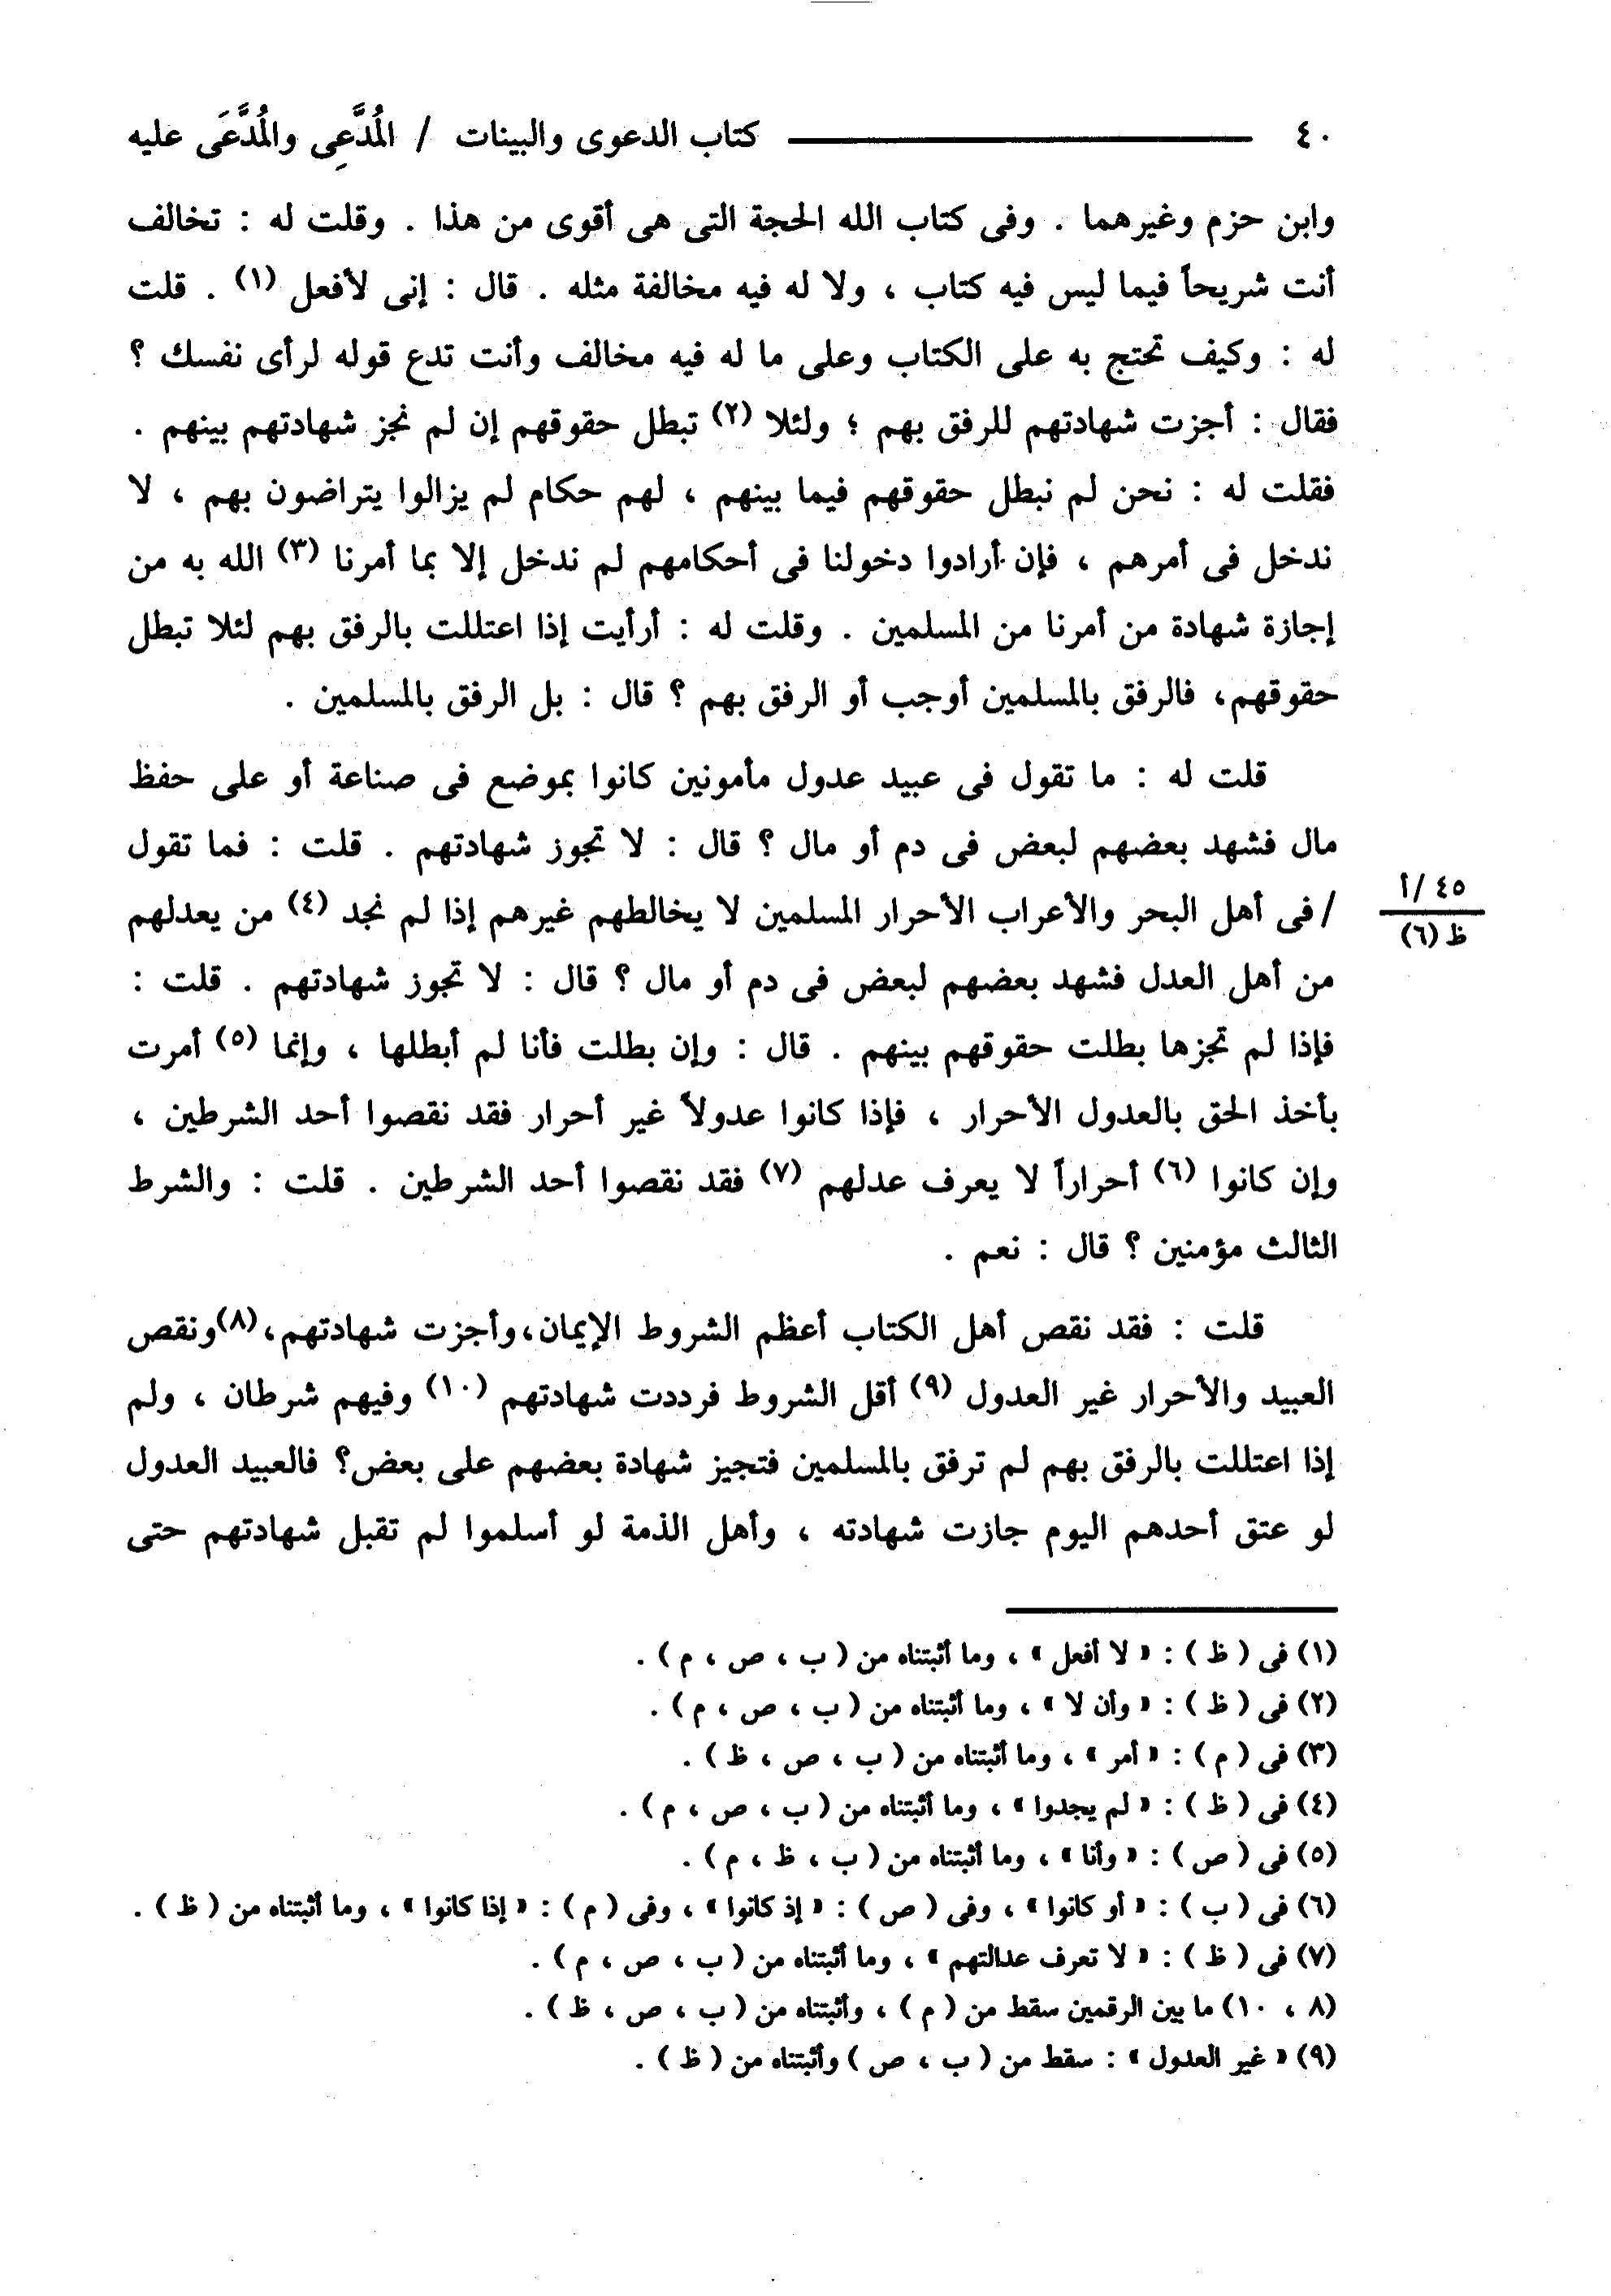 ٤٠ كتاب الدعوى والبينات / المُدَّعِى والمُدَّعَى عليه
وابن حزم وغيرهما . وفى كتاب الله الحجة التى هى أقوى من هذا . وقلت له : تخالف
أنت شريحاً فيما ليس فيه كتاب ، ولا له فيه مخالفة مثله . قال : إنى لأفعل (١) . قلت
له : وكيف تحتج به على الكتاب وعلى ما له فيه مخالف وأنت تدع قوله لرأى نفسك ؟
فقال : أجزت شهادتهم للرفق بهم ؛ ولئلا (٢) تبطل حقوقهم إن لم نجز شهادتهم بينهم .
فقلت له : نحن لم نبطل حقوقهم فيما بينهم ، لهم حكام لم يزالوا يتراضون بهم ، لا
ندخل فى أمرهم ، فإن أرادوا دخولنا فى أحكامهم لم ندخل إلا بما أمرنا (٣) الله به من
إجازة شهادة من أمرنا من المسلمين . وقلت له : أرأيت إذا اعتللت بالرفق بهم لئلا تبطل
حقوقهم، فالرفق بالمسلمين أوجب أو الرفق بهم ؟ قال : بل الرفق بالمسلمين .
قلت له : ما تقول فى عبيد عدول مأمونين كانوا بموضع فى صناعة أو على حفظ
مال فشهد بعضهم لبعض فى دم أو مال ؟ قال : لا تجوز شهادتهم . قلت : فما تقول
٤٥ /أ
ظ (٦)
/ فى أهل البحر والأعراب الأحرار المسلمين لا يخالطهم غيرهم إذا لم نجد (٤) من يعدلهم
من أهل العدل فشهد بعضهم لبعض فى دم أو مال ؟ قال : لا تجوز شهادتهم . قلت :
فإذا لم تجزها بطلت حقوقهم بينهم . قال : وإن بطلت فأنا لم أبطلها ، وإنما (٥) أمرت
بأخذ الحق بالعدول الأحرار ، فإذا كانوا عدولاً غير أحرار فقد نقصوا أحد الشرطين ،
وإن كانوا (٦) أحراراً لا يعرف عدلهم (٧) فقد نقصوا أحد الشرطين . قلت : والشرط
الثالث مؤمنين ؟ قال : نعم .
قلت : فقد نقص أهل الكتاب أعظم الشروط الإيمان،وأجزت شهادتهم،(٨)ونقص
العبيد والأحرار غير العدول (٩) أقل الشروط فرددت شهادتهم (١٠) وفيهم شرطان ، ولم
إذا اعتللت بالرفق بهم لم ترفق بالمسلمين فتجيز شهادة بعضهم على بعض؟ فالعبيد العدول
لو عتق أحدهم اليوم جازت شهادته ، وأهل الذمة لو أسلموا لم تقبل شهادتهم حتى
(١) فى ( ظ ) : « لا أفعل » ، وما أثبتناه من ( ب ، ص ، م ) .
(٢) فى ( ظ ) : « وأن لا » ، وما أثبتناه من ( ب ، ص ، م ) .
(٣) فى ( م ) : « أمر » ، وما أثبتناه من ( ب ، ص ، ظ ) .
(٤) فى ( ظ ) : « لم يجدوا » ، وما أثبتناه من ( ب ، ص ، م ) .
(٥) فى ( ص ) : « وأنا » ، وما أثبتناه من ( ب ، ظ ، م ) .
(٦) فى ( ب ) : « أو كانوا » ، وفى ( ص ) : « إذ كانوا » ، وفى ( م ) : « إذا كانوا » ، وما أثبتناه من ( ظ ) .
(٧) فى ( ظ ) : « لا تعرف عدالتهم » ، وما أثبتناه من ( ب ، ص ، م ) .
(٨ ، ١٠) ما بين الرقمين سقط من ( م ) ، وأثبتناه من ( ب ، ص ، ظ ) .
(٩) « غير العدول » : سقط من ( ب ، ص ) وأثبتناه من ( ظ ) .